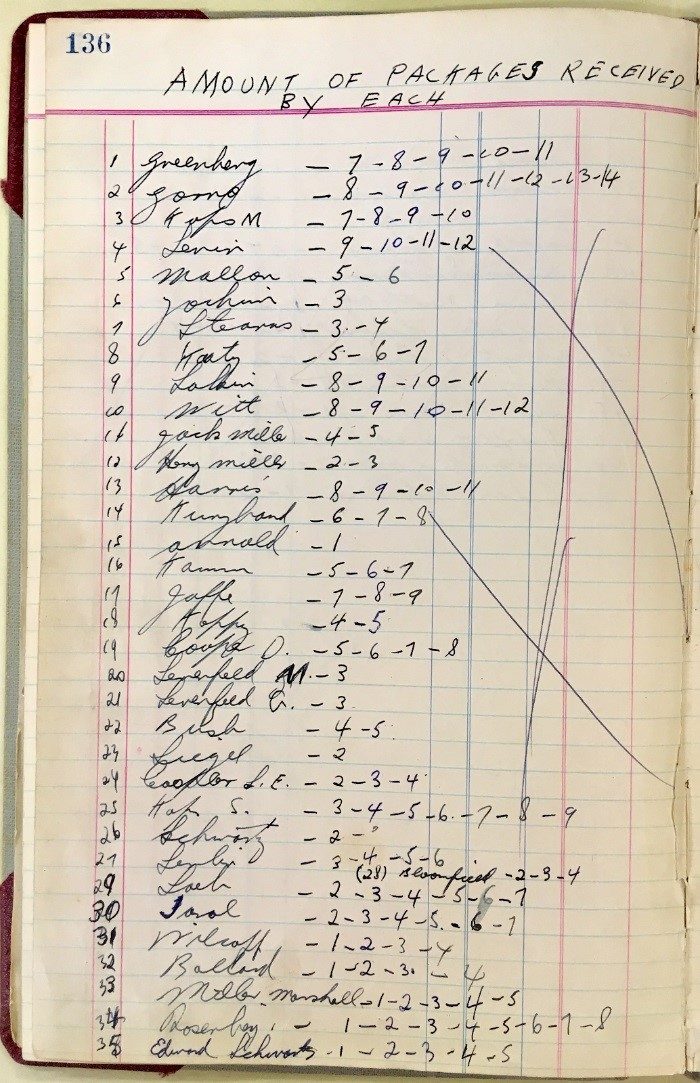 136
AMOUNT OF PACKAGES RECEIVED
BY EACH
1 Greenberg - 7-8-9-10-11
2 - 8-9-10-11-12-13-14
3 Kaps M - 7-8-9-10
4 Levin - 9-10-11-12
5 Mallon - 5-6
6 Jochim - 3
7 Stearns - 3-4
8 Katz - 5-6-7
9 - 8-9-10-11
10 Witt - 8-9-10-11-12
11 Jack Mille - 4-5
12 Miller - 2-3
13 Harris - 8-9-10-11
14 - 6-7-8
15 Arnold - 1
16 Kamm - 5-6-7
17 Jaffe - 7-8-9
18 Koppy - 4-5
19 Coope D. - 5-6-7-8
20 Levenfeld M. - 3
21 Levenfeld E. - 3
22 Bush - 4-5
23 Siegel - 2
24 Coopler S.E. - 2-3-4
25 Kaps S. - 3-4-5-6-7-8-9
26 Schwartz - 2-
27 - 3-4-5-6
(28) Bloomfield - 2-3-4
29 Loeb - 2-3-4-5-6-7
30 - 2-3-4-5-6-7
31 Wilcoff - 1-2-3-4
32 Ballard - 1-2-3-4
33 Miller Marshall - 1-2-3-4-5
34 Rosenberg - 1-2-3-4-5-6-7-8
35 Edward Schwartz - 1-2-3-4-5